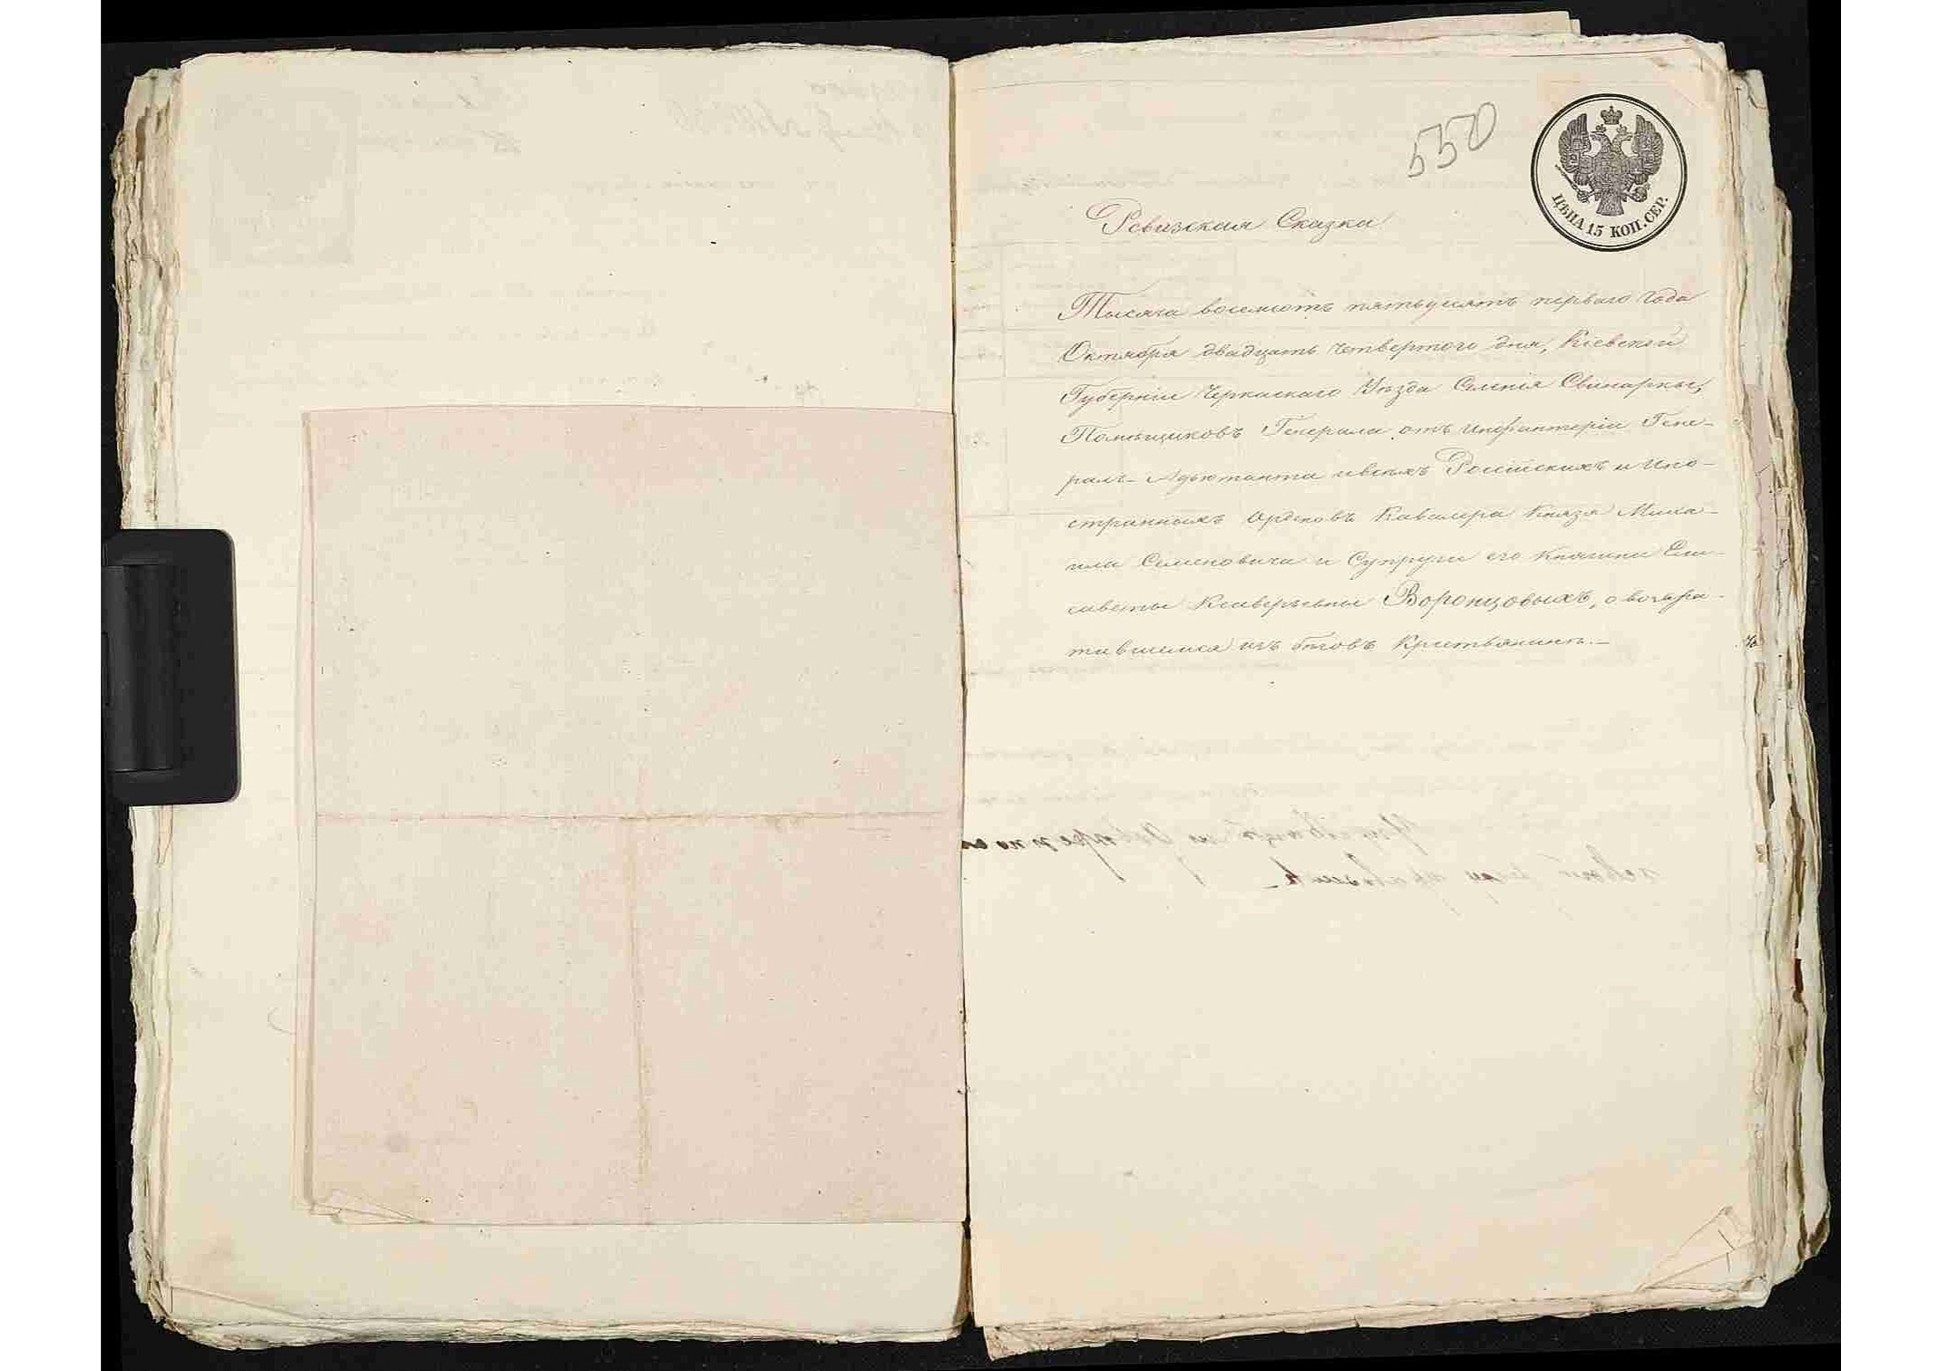 550
ЦѢНА 15 КОП. СЕР.
Ревизская Сказка
Тысяча восемсотъ пятьдесятъ перваго года
Октября двадцать четвертого дня, Кіевской
Губерніи Черкаскаго Уѣзда Селенія Свинарки,
Помѣщиковъ Генерала отъ инфантеріи Гене-
ралъ-Адъютанта и всѣхъ Россійскихъ и ино-
странныхъ Орденовъ Кавалера Князя Миха-
ила Семеновича и Супруги его Княгини Ели-
саветы Ксаверьевны Воронцовыхъ, о возвра-
тившемся изъ бѣговъ Крестьянинѣ.—